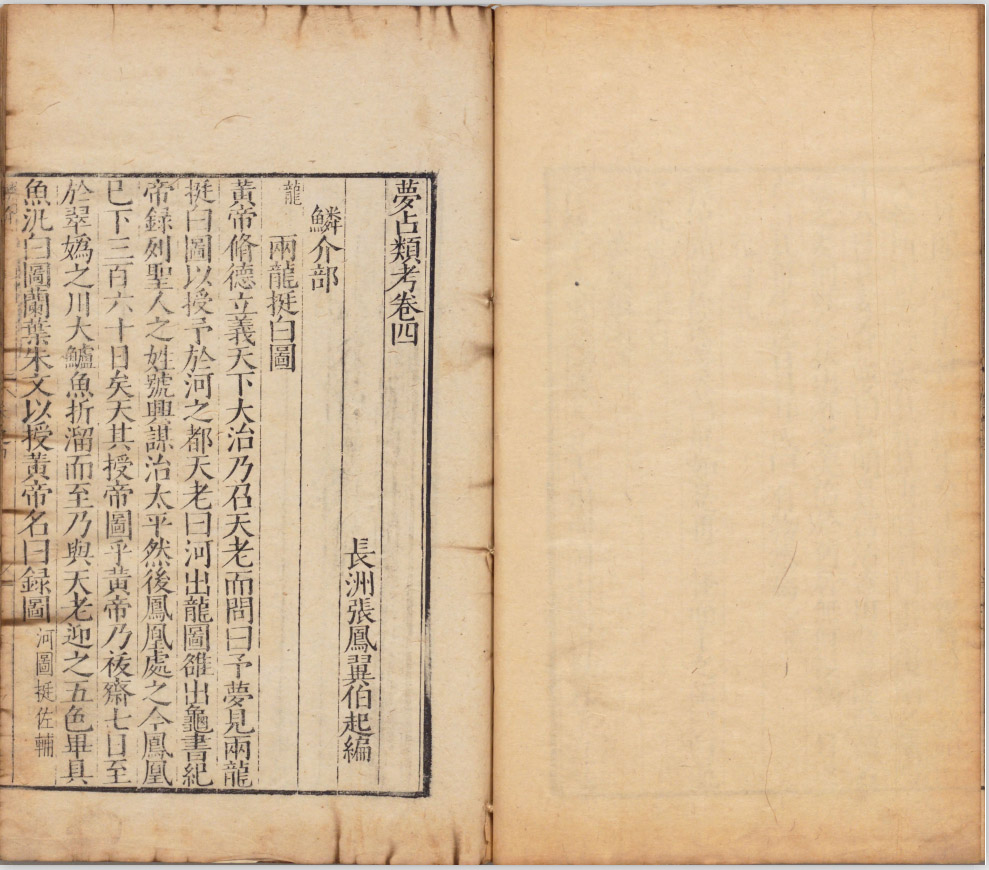 夢占類考卷四
長洲張鳳翼伯起編
鱗介部
龍
兩龍挺白圖
黃帝脩德立義天下大治乃召天老而問曰予夢見兩龍
挺白圖以授予於河之都天老曰河出龍圖雒出龜書紀
帝錄列聖人之姓號興謀治太平然後鳳凰處之今鳳凰
已下三百六十日矣天其授帝圖乎黃帝乃祓齋七日至
於翠嬀之川大鱸魚折溜而至乃與天老迎之五色畢具
魚汎白圖蘭葉朱文以授黃帝名曰錄圖河圖挺佐輔